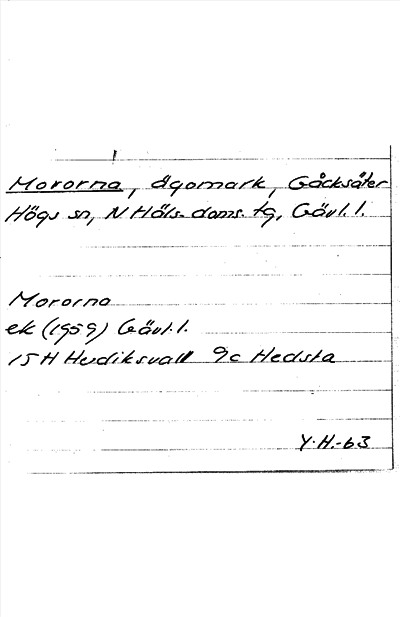 Mororna, ägomark, Gåcksäter
Högs sn, N Häls. doms. tg, Gävl. l.
Mororna
ek (1959) Gävl. l.
15H Hudiksvall 9c Hedsta
Y.H.-63